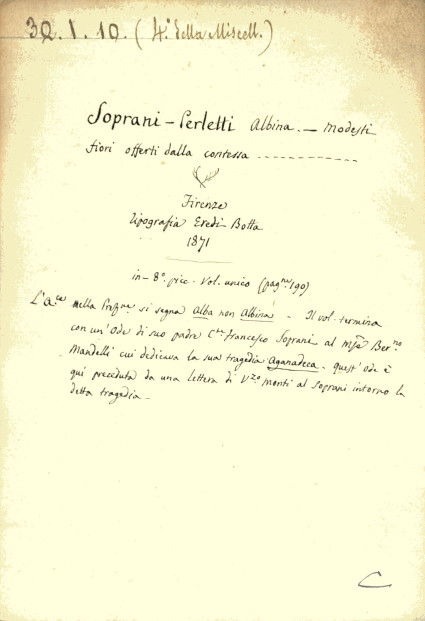 32.1.10. (4° della Miscell.)
Soprani-Perletti Albina. — Modesti
fiori offerti dalla contessa ------------
Firenze
Tipografia Eredi Botta
1871
in-8°. picc. Vol. unico (pagne 190)
L'aca nella Prefne si segna Alba non Albina - Il vol. termina
con un'Ode di suo padre Cte Francesco Soprani al Mse Berno
Mandelli cui dedicava la sua tragedia Aganadeca. quest'Ode è
qui preceduta da una lettera di Vzo Monti al Soprani intorno la
detta tragedia -
C